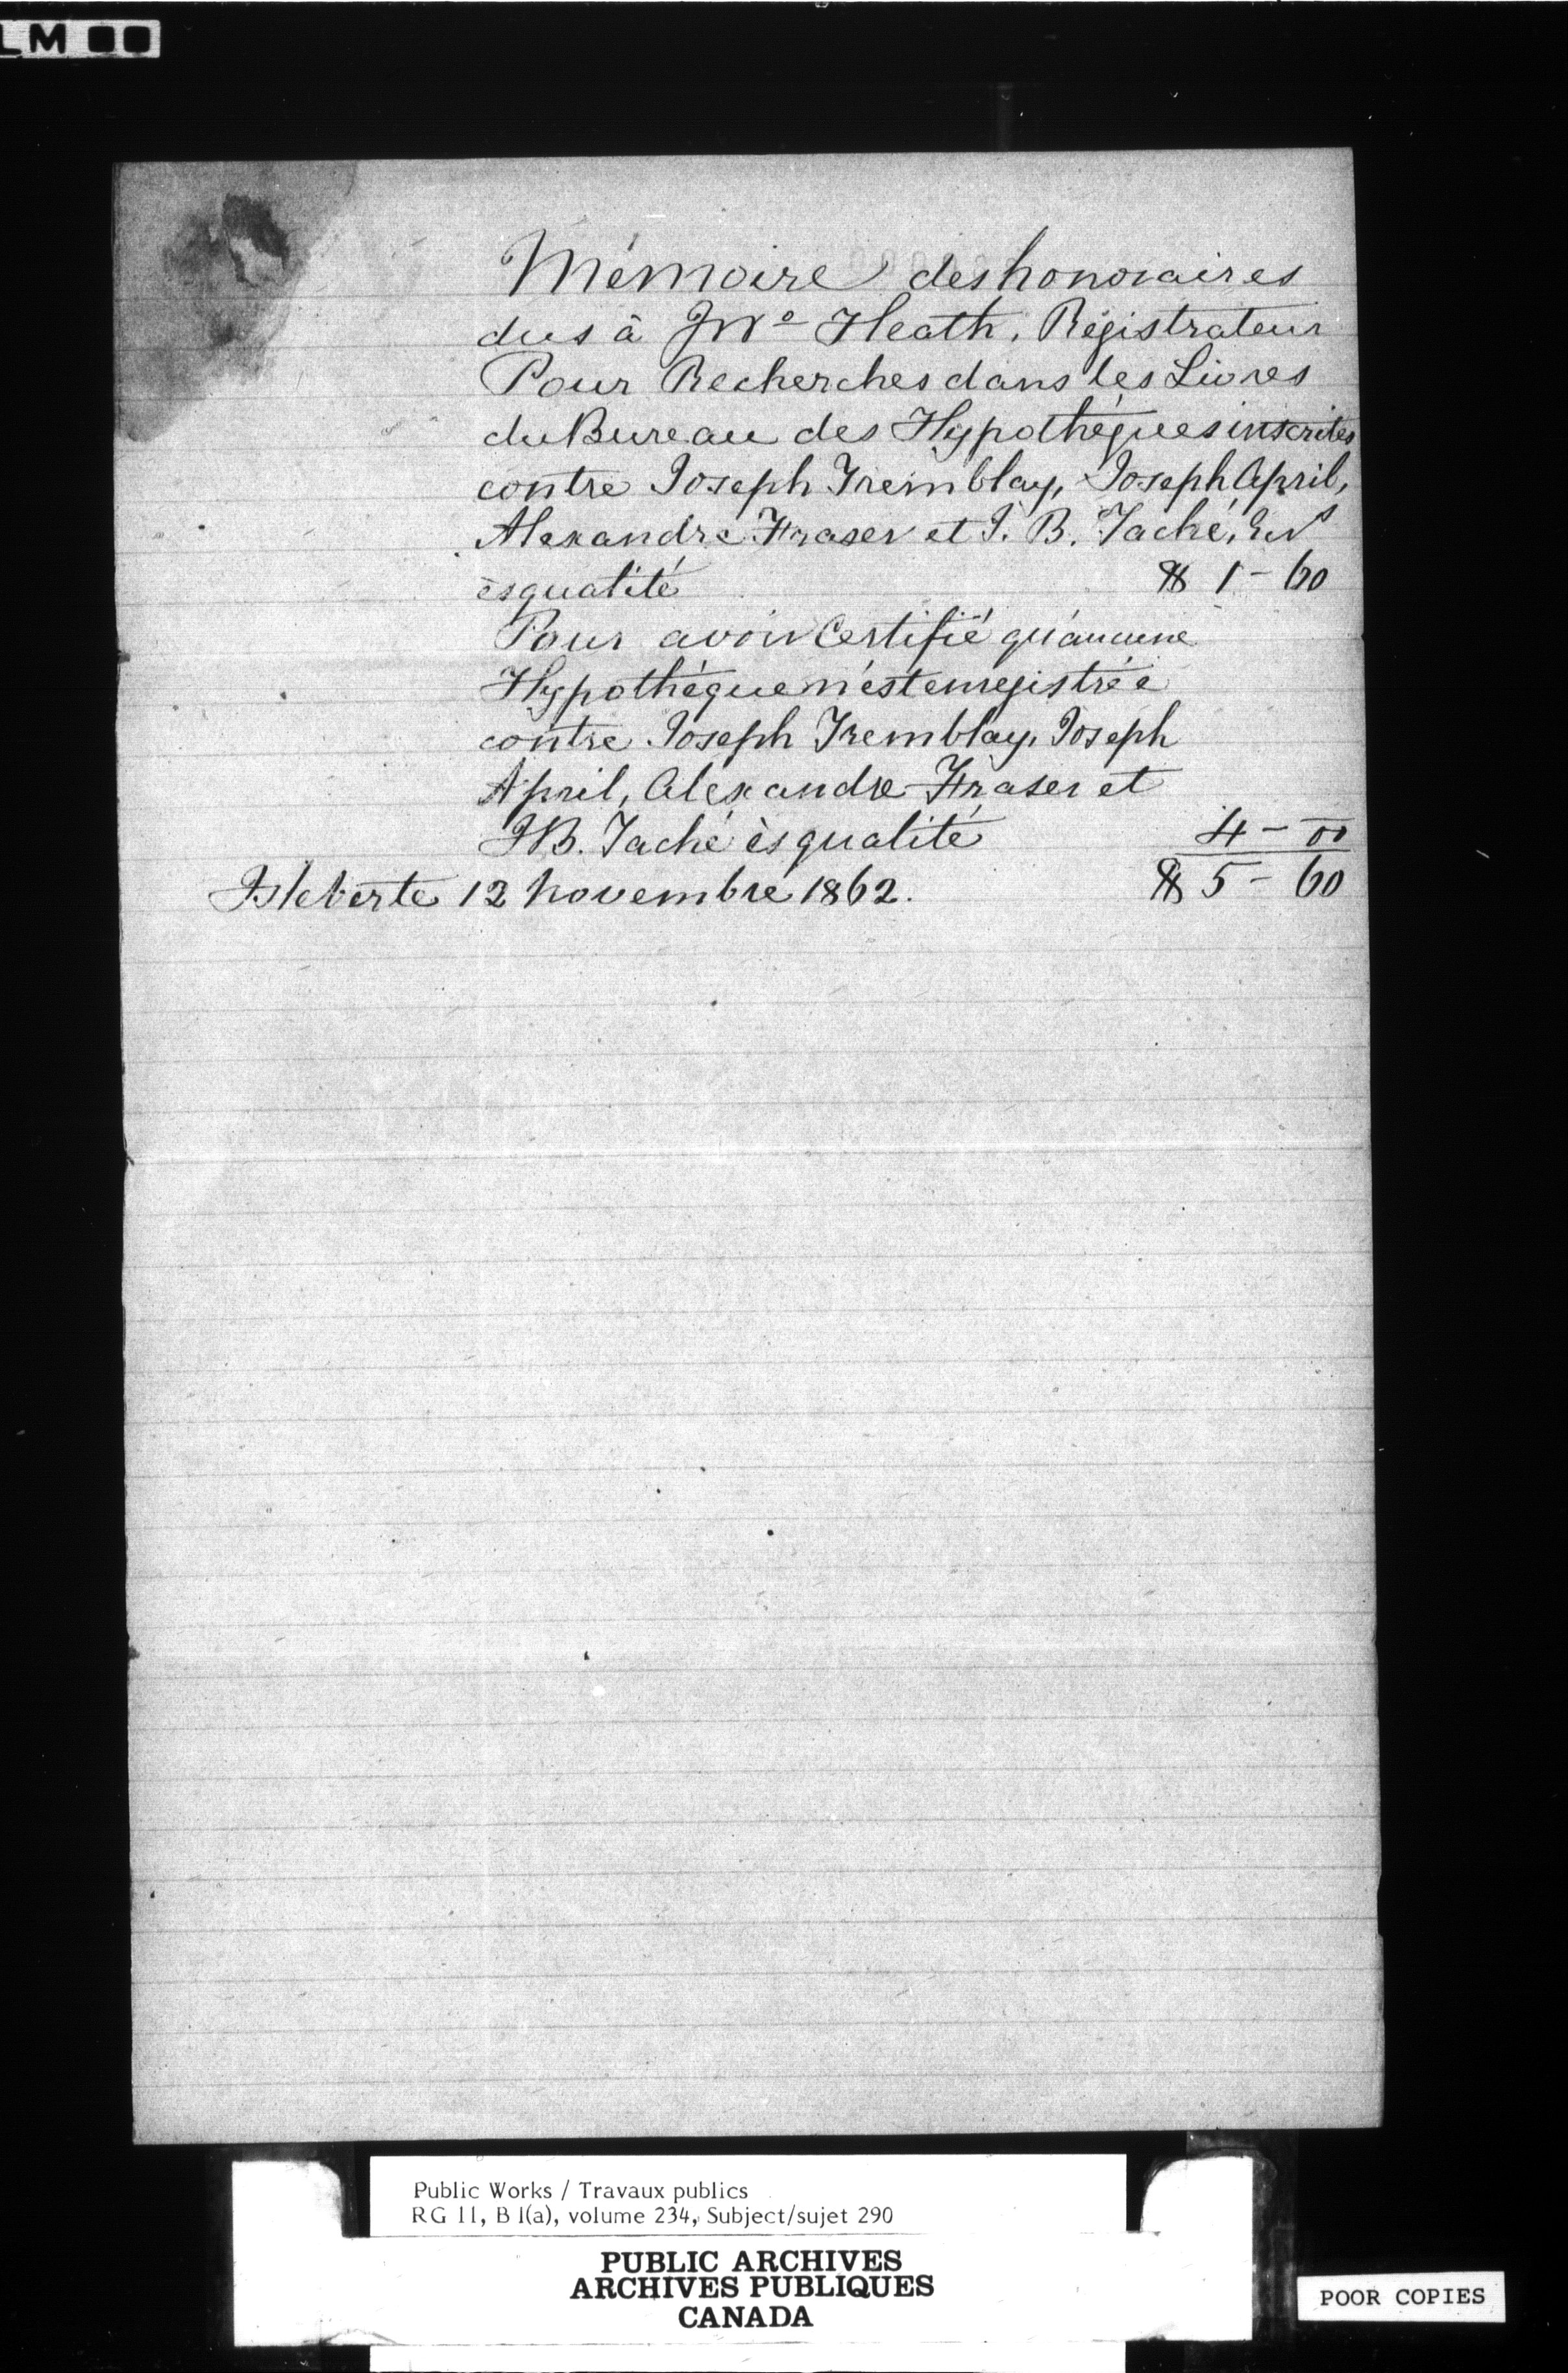 LM
Mémoire des honoraires
dus à Jno Heath, Régistrateur
Pour Recherches dans les Livres
du Bureau des Hypothéques inscrites
contre Joseph Tremblay, Joseph April,
Alexandre Fraser et J. B. Taché,
èsqualité $ 1 - 60
Pour avoir Certifié qu'aucune
Hypothéque n'est enregistrée
contre Joseph Tremblay, Joseph
April, Alexandre Fraser et
JB. Taché ès qualité 4 - 00
Isle Verte 12 Novembre 1862. $ 5 - 60
Public Works / Travaux publics
RG 11, B 1(a), volume 234, Subject/sujet 290
PUBLIC ARCHIVES
ARCHIVES PUBLIQUES
CANADA
POOR COPIES